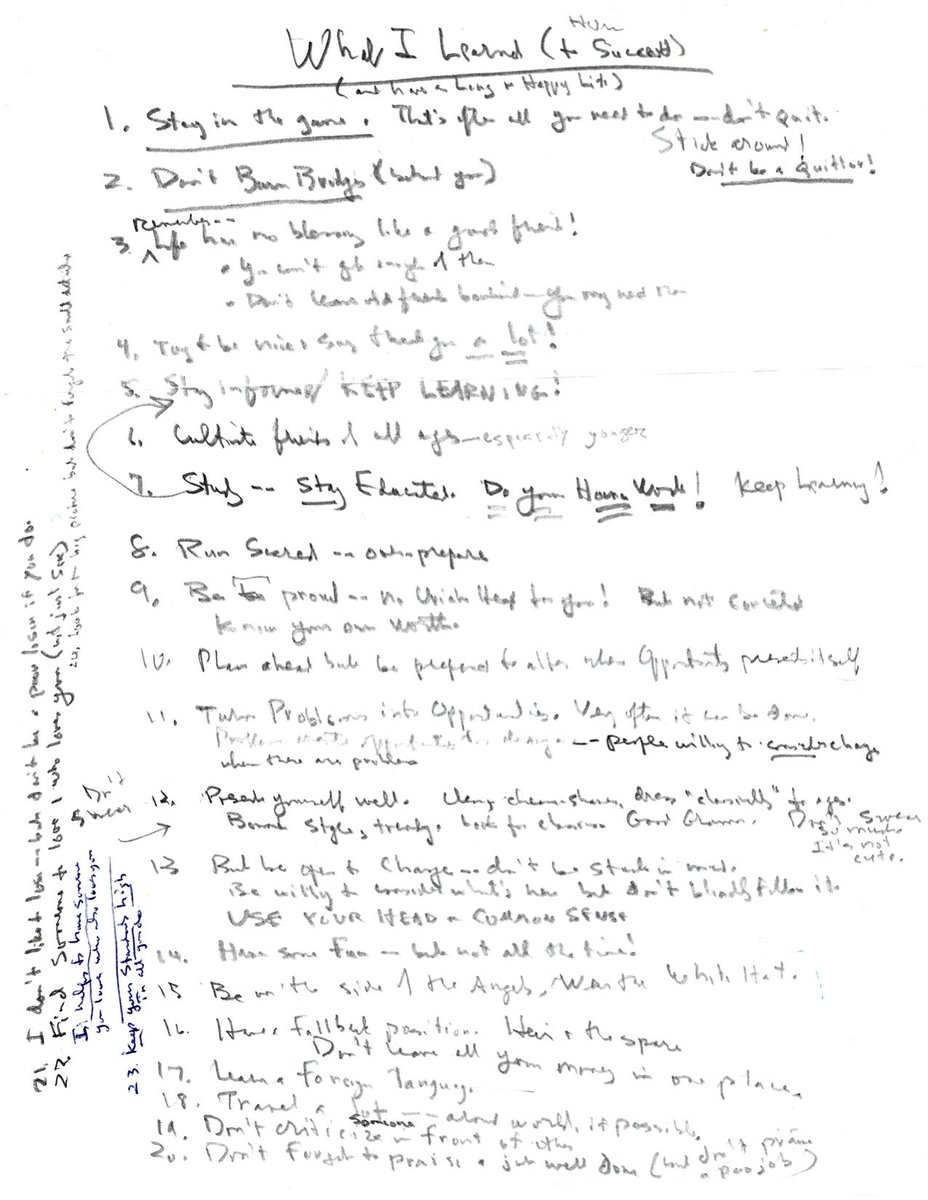 What I Learned (How to Succeed)
(and have a Long & Happy Life)
1. Stay in the game. That's often all you need to do — don't quit.
Stick around!
Don't be a Quitter!
2. Don't Burn Bridges (behind you)
3. Remember -- Life has no blessing like a good friend!
• You can't get enough of them
• Don't leave old friends behind — you may need them
4. Try to be nice & say thank you a lot!
5. Stay informed/ KEEP LEARNING!
6. Cultivate friends of all ages — especially younger
7. Study -- Stay Educated. Do your Home Work! Keep learning!
8. Run Scared -- over-prepare
9. Be proud -- no Uriah Heep for you! But not conceited
Know your own worth.
10. Plan ahead but be prepared to alter when Opportunity presents itself
11. Turn Problems into Opportunities. Very often it can be done.
Problems create opportunities for change -- people willing to consider change
when there are problems
12. Present yourself well. Clean, dress "classically" to age.
Beware styles, trendy. Look for classic Good Grammar. Don't swear
so much
It's not
cute.
13 But be open to change — don't be stuck in mud.
Be willing to consider what's new but don't blindly follow it.
USE YOUR HEAD & COMMON SENSE
14. Have some Fun — but not all the time!
15 Be on the side of the Angels. Wear the White Hat.
16. Have a fallback position. Heir & the spare
Don't leave all your money in one place.
17. Learn a foreign language.
18. Travel a lot -- around world, if possible.
19. Don't criticize someone in front of others
20. Don't forget to praise a job well done (but don't praise
a poor job)
21. I don't like to lose -- but don't be a poor loser if you do.
22. Find someone to love & who loves you (not just sex)
It helps to have someone
you love who also loves you
23. Keep your Standards high
in all you do
24. Look for big picture but don't forget the small details
Don't
swear